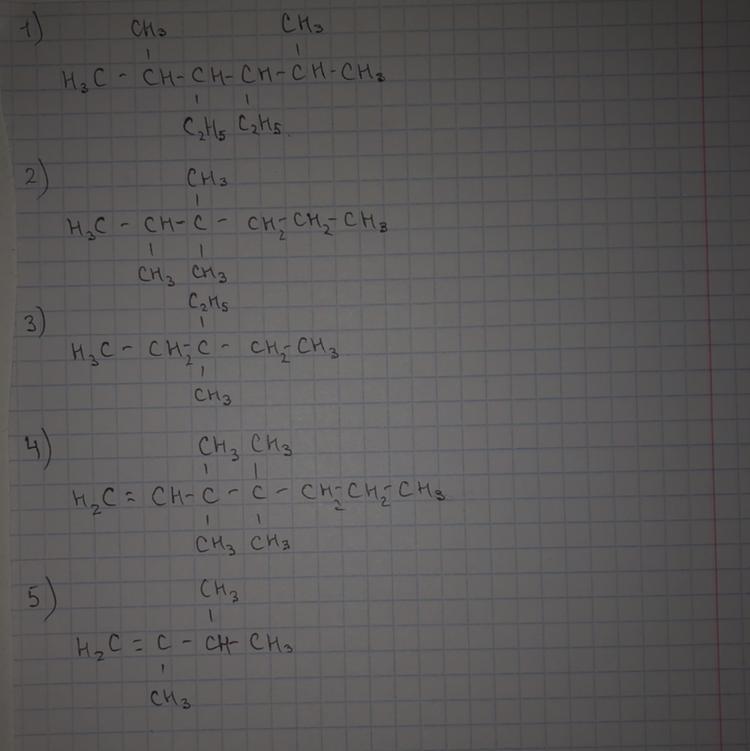 1) CH₃ CH₃
H₃C - CH - CH - CH - CH - CH₃
C₂H₅ C₂H₅
2) CH₃
H₃C - CH - C - CH₂ - CH₂ - CH₃
CH₃ CH₃
3) C₂H₅
H₃C - CH₂ - C - CH₂ - CH₃
CH₃
4) CH₃ CH₃
H₂C = CH - C - C - CH₂ - CH₂ - CH₃
CH₃ CH₃
5) CH₃
H₂C = C - CH - CH₃
CH₃